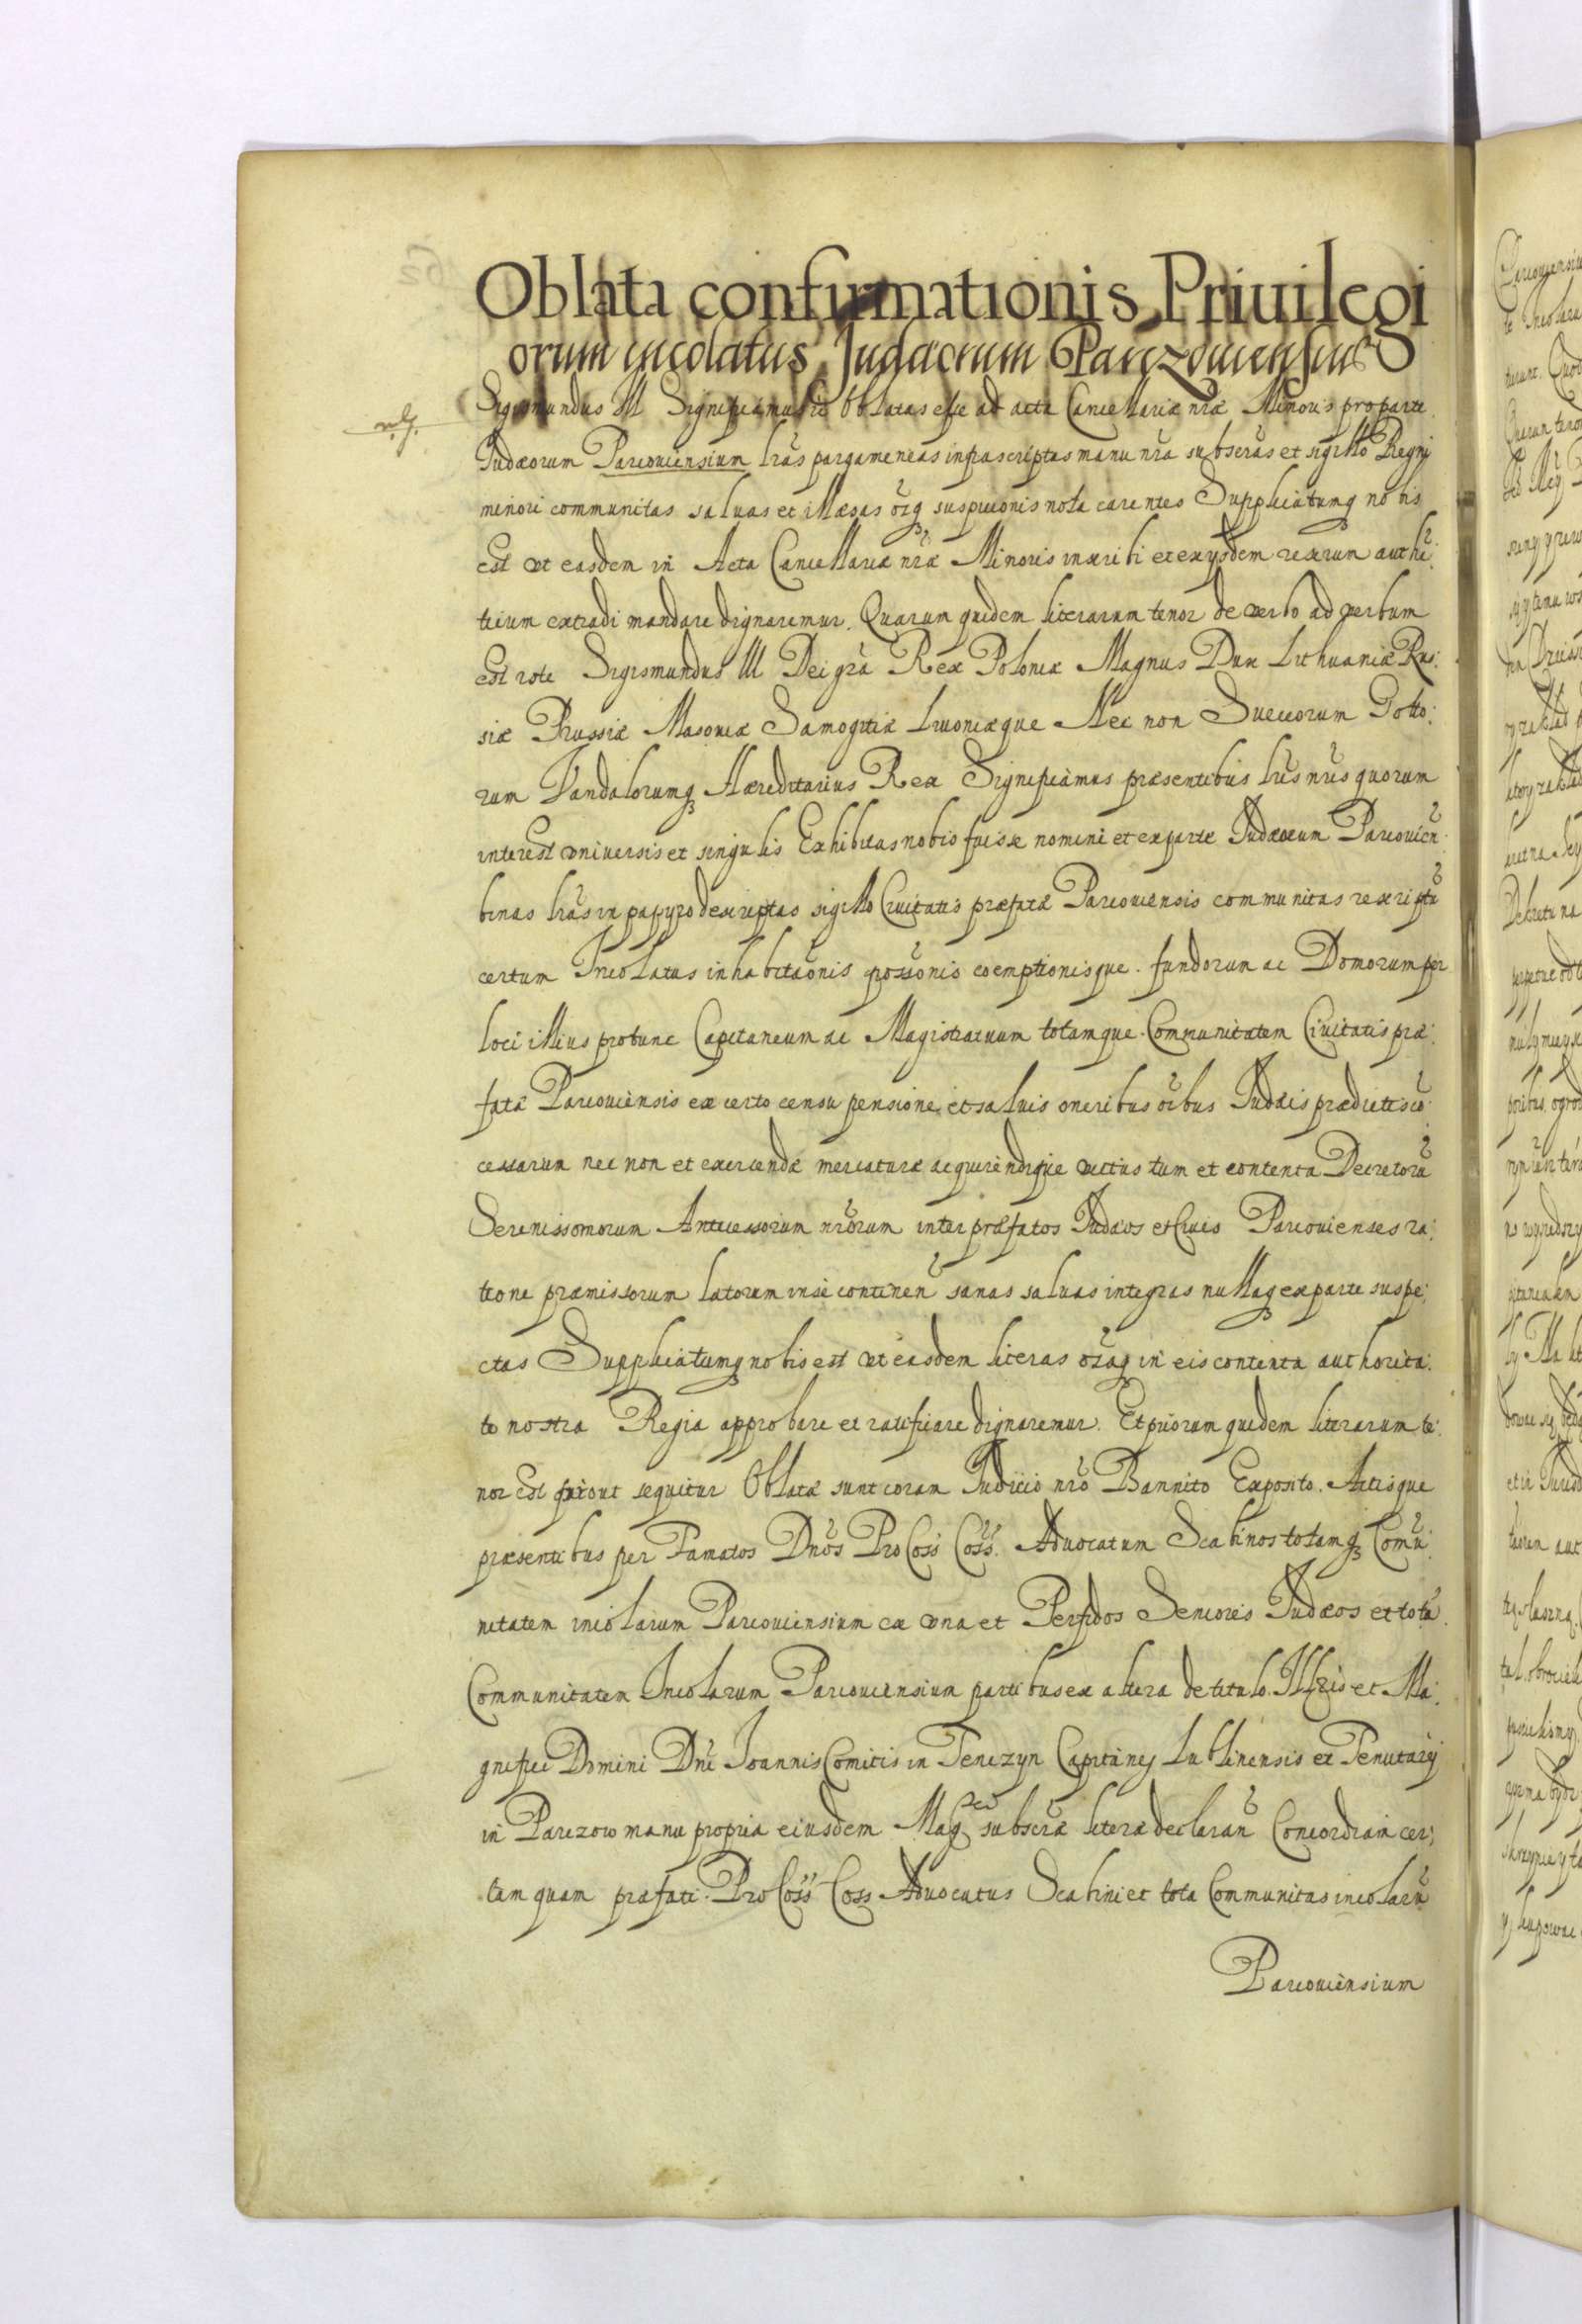 Oblata confirmationis Priuilegi
orum incolatus Judæorum Parczouiensium
Sigismundus III Significamus etc Oblatas esse ad acta Cancellariæ nræ Minoris pro parte
Judæorum Parcouiensium lrãs pargameneas infrascriptas manu nra subscrãs et sigillo Regni
minori communitas saluas et illæsas õiq3 suspicionis nota carentes Supplicatumq3 nobis
est vt easdem in Acta Cancellariæ nræ Minoris inscribi et ex ijsdem rescrum authẽ:
ticum extradi mandare dignaremur. Quarum quidem literarum tenor de verbo ad verbum
est iste Sigismundus III Dei gra Rex Poloniæ Magnus Dux Lithuaniæ Rus:
siæ Prussiæ Masouiæ Samogitiæ Liuoniæque Nec non Sueccorum Gotto:
rum Vandalorumq3 Hæreditarius Rex Significamus præsentibus lris nris quorum
interest vniuersis et singulis Exhibitas nobis fuisse nomine et ex parte Judæorum Parcouien
binas lrãs in papyro descriptas sigillo Ciuitatis præfatæ Parcouiensis communitas rescriptũ
certum Incolatus inhabitaõnis possõnis coemptionisque fundorum ac Domorum per
loci illius protunc Capitaneum ac Magistratuum totamque Communitatem Ciuitatis præ:
fatæ Parcouiensis ex certo censu pensione et saluis oneribus õibus Judæis prædictis cõ:
cessarum nec non et exercendæ mercaturæ acquirendique victus tum et contenta Decretorũ
Serenissomorum Antecessorum nrõrum inter præfatos Judæos et Ciues Parcouienses ra:
tione præmissorum latorum in se continen̄ sanas saluas integras nullaq3 ex parte suspe:
ctas Supplicatumq3 nobis est vt easdem literas õiaq3 in eis contenta authorita:
te nostra Regia approbare et ratificare dignaremur. Et priorum quidem literarum te:
nor est prout sequitur Oblatæ sunt coram Judicio nrõ Bannito Exposito. Actisque
præsentibus per Famatos Dnõs Pro Coss Coss. Aduocatum Scabinos totamq3 Comũ:
nitatem incolarum Parcouiensium ex vna et Perfidos Seniores Judæos et totã
Communitatem Incolarum Parcouiensium partibus ex altera de titulo Illris et Ma:
gnifici Domini Dni Joannis Comitis in Tenczyn Capitanej Lublinensis et Tenutarij
in Parczow manu propria eiusdem Mag subscræ literæ declaran̄ Concordiam cer:
tam quam præfati Pro Coss Coss Aduocatus Scabini et tota Communitas incolarũ
Parcouiensium